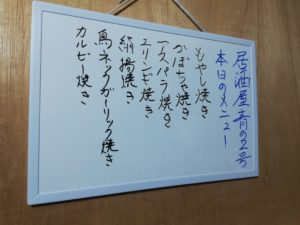 居酒屋青の2号
本日のメニュー!
もやし焼き
かぼちゃ焼き
アスパラ焼き
エリンギ焼き
絹揚焼き
鳥ネックガーリック焼き
カルビー焼き